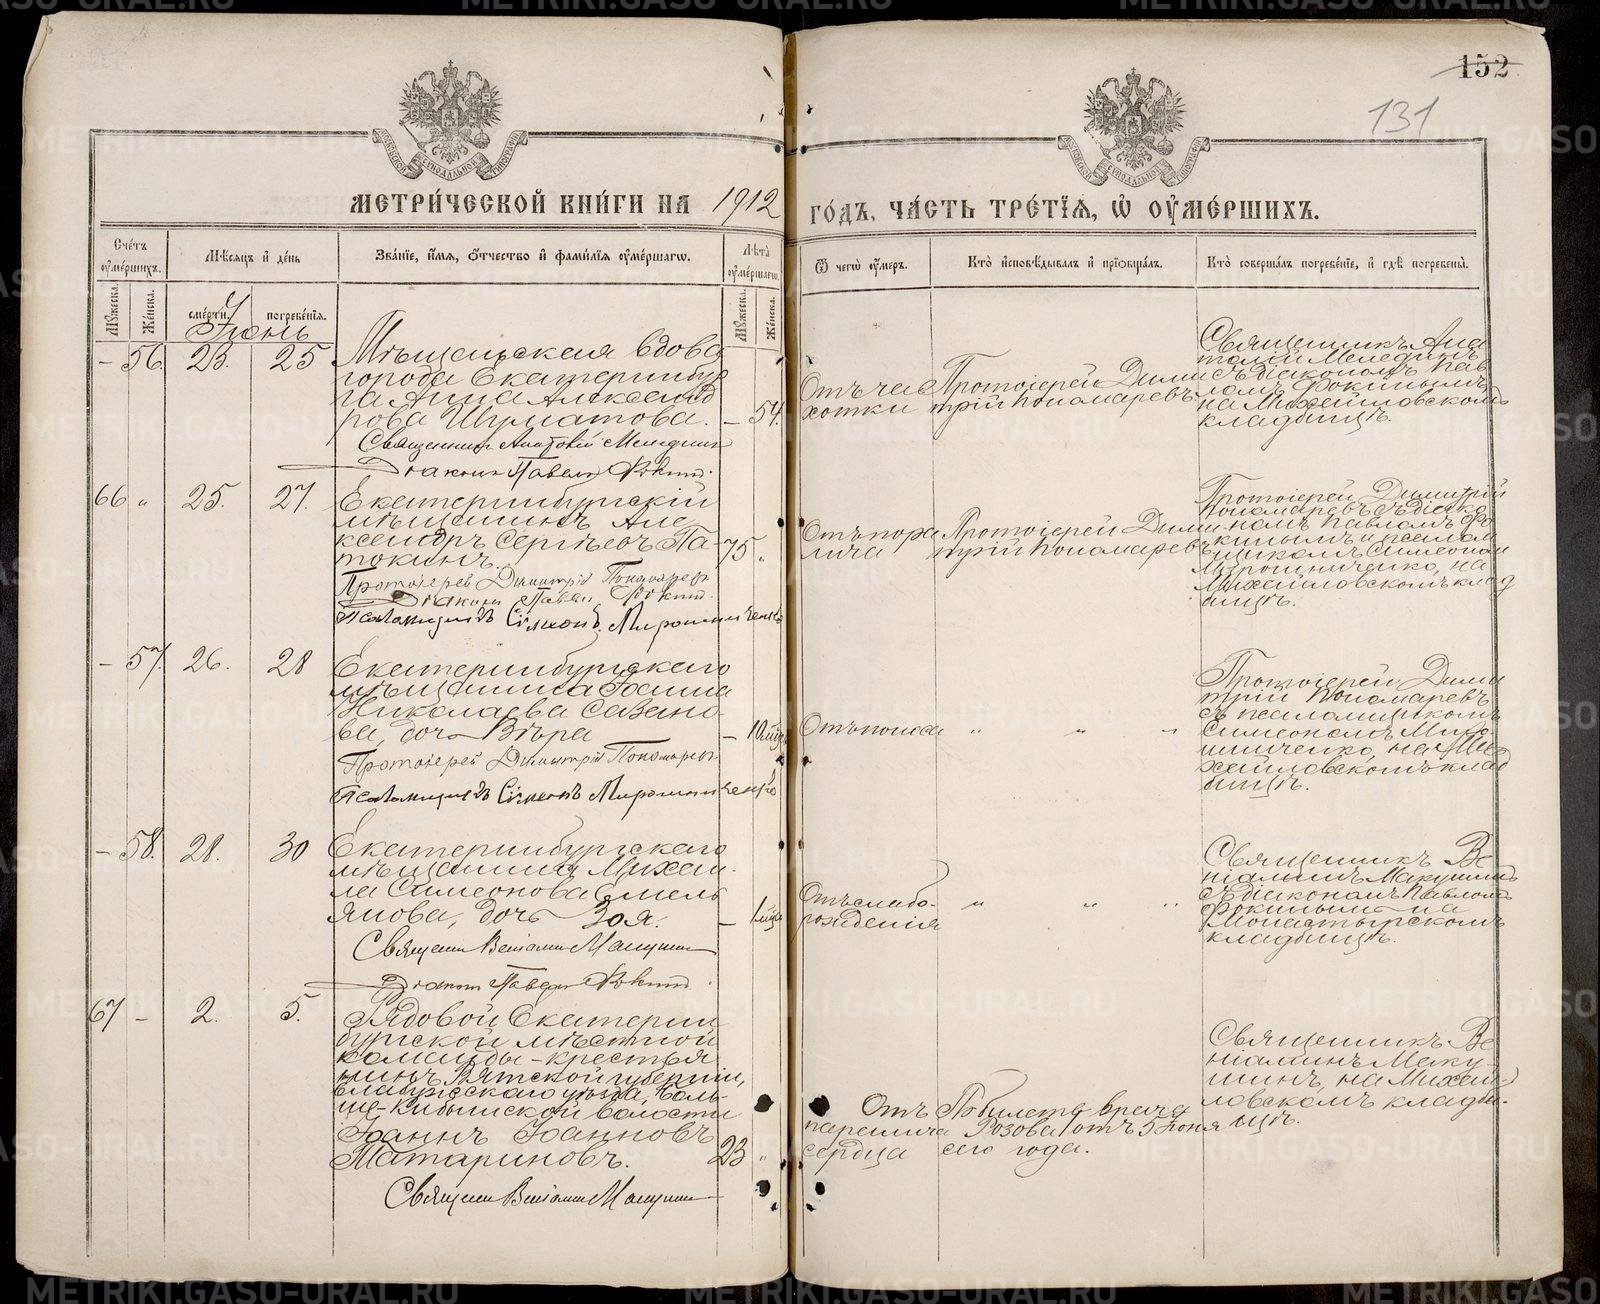 152
131
МЕТРИ́ЧЕСКОЙ КНИ́ГИ НА 1912
ГО́ДЪ, ЧА́СТЬ ТРЕ́ТІѦ, Ѡ ОУМЕ́РШИХЪ.
Сче́тъ оумершихъ.
Мѣсяцъ и де́нь
Зва́ніе, и́мя, о́тчество и фами́лія оуме́ршагѡ.
Лѣта оуме́ршагѡ.
Ѿ чегѡ̀ оу́меръ.
Кто̀ исповѣ́дывалъ и пріѡбща́лъ.
Кто̀ соверша́лъ погребе́ніе, и гдѣ̀ погребены̀.
Мужеска.
Женска.
сме́рти.
погребе́нія.
Мужеска.
Женска.
Іюнь
– 56. 23. 25
Мѣщанская вдова
города Екатеринбур
га Анна Александ
рова Шурматова. – 54.
Священникъ Анатолій Меледин
Діаконъ Павелъ Фокинъ.
Отъ ча
хотки
Протоіерей Дими
трій Пономаревъ
Священникъ Ана
толій Мелединъ
съ діакономъ Пав
ломъ Фокинымъ,
на Михайловскомъ
кладбищѣ.
66 „ 25. 27.
Екатеринбургскій
мѣщанинъ Але
ксандръ Сергѣевъ Па-
токинъ. 75 „
Протоіерей Димитрій Пономаревъ
Діаконъ Павелъ Фокинъ.
Псаломщикъ Сѵмеонъ Мирошниченко
Отъ пара
лича
Протоіерей Дими
трій Пономаревъ
Протоіерей Димитрій
Пономаревъ съ діако
номъ Павломъ Фо
кинымъ и псалом
щикомъ Симеономъ
Мирошниченко, на
Михайловскомъ клад
бищѣ.
– 57. 26. 28
Екатеринбургскаго
мѣщанина Іоанна
Николаева Сазано-
ва, дочь Вѣра – 10 мѣс.
Протоіерей Димитрій Пономаревъ
Псаломщикъ Сѵмеонъ Мирошниченко
Отъ поноса „ „ „
Протоіерей Дими
трій Пономаревъ
съ псаломщикомъ
Симеономъ Миро
шниченко, на Ми
хайловскомъ клад
бищѣ.
– 58. 28. 30
Екатеринбургскаго
мѣщанина Михаи-
ла Симеонова Емель
янова, дочь Зоя. – 1 мѣс.
Священ. Веніамин Макушин
Діаконъ Павелъ Фокинъ.
Отъ слабо-
рожденія „ „ „
Священникъ Ве
ніаминъ Макушинъ
съ діакономъ Павломъ
Фокинымъ на
Монастырскомъ
кладбищѣ.
67 – 2. 5.
Рядовой Екатерин
бургской мѣстной
команды – крестья
нинъ Вятской губерніи,
Елабужскаго уѣзда, Боль-
ше-Кибьинской волости
Іоаннъ Іоанновъ
Матариновъ. 23 „
Священ. Веніамин Макушин
Отъ
паралича
сердца
По билету врача
Розова отъ 5 іюня
сего года.
Священникъ Ве
ніаминъ Маку-
шинъ, на Михай-
ловскомъ кладби-
щѣ.